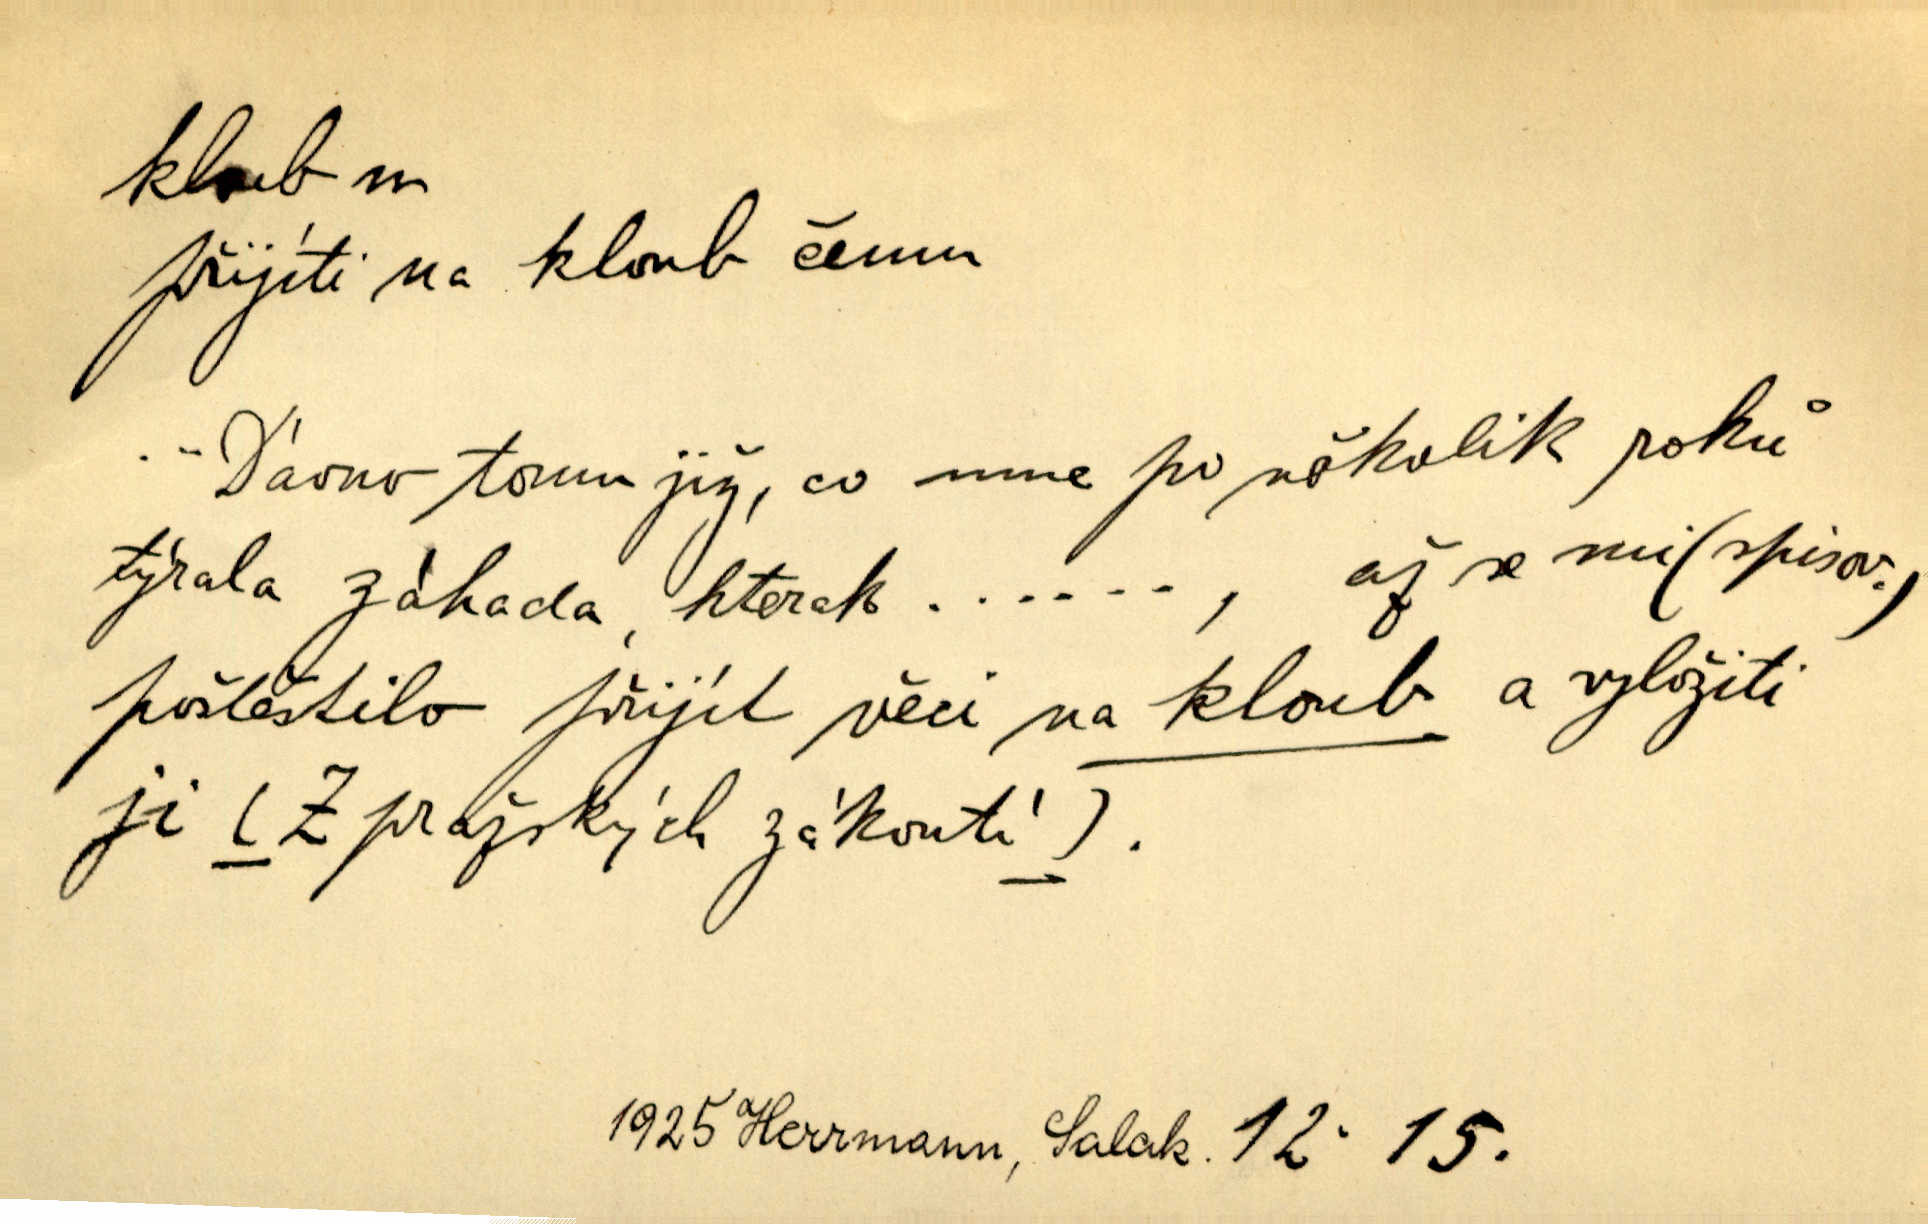 kloub m
přijíti na kloub čemu
... Dávno tomu již, co mne po několik roků
týrala záhada, kterak ......., až se mi (spisov.)
poštěstilo přijít věci na kloub a vyložiti
ji (Z pražských zákoutí).
1925 Herrmann, Salak. 12. 15.